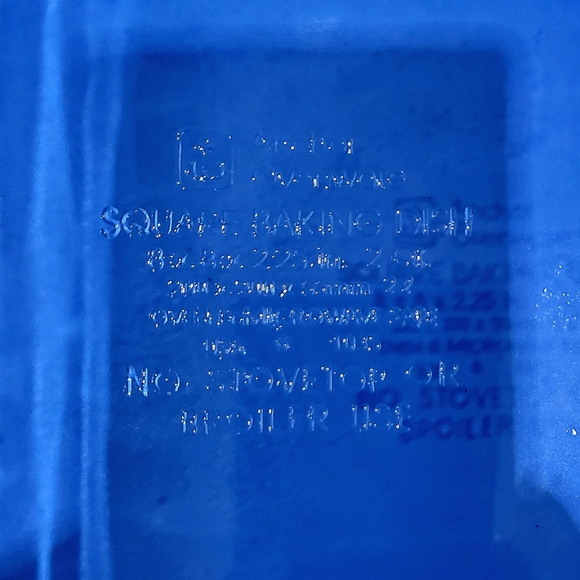 Anchor
Ovenware
SQUARE BAKING DISH
8 x 8 x 2.25 in.
2 L
OVEN & MICROWAVE SAFE
NO STOVETOP OR
BROILER USE